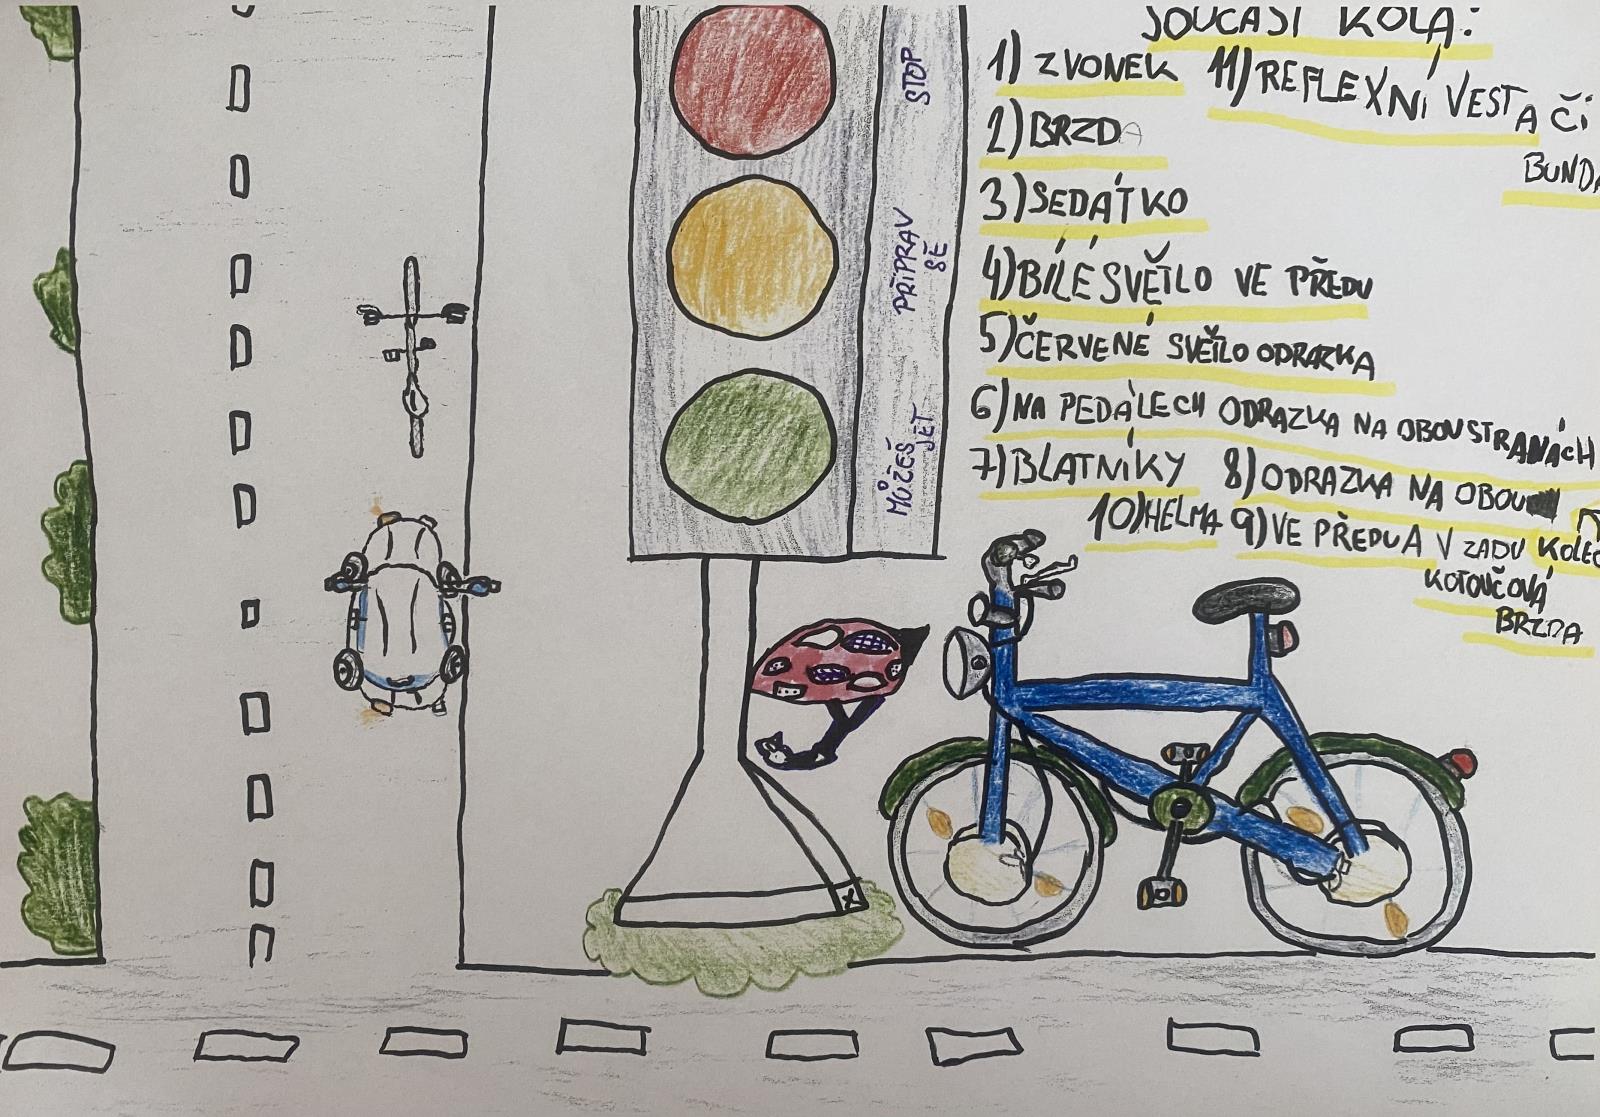 SOUČASÍ KOLA:
1) ZVONEK
11) REFLEXNÍ VESTA ČI
BUNDA
2) BRZDA
3) SEDÁTKO
4) BÍLÉ SVĚTLO VE PŘEDU
5) ČERVENÉ SVĚTLO ODRAZKA
6) NA PEDÁLECH ODRAZKA NA OBOU STRANÁCH
7) BLATNÍKY
8) ODRAZKA NA OBOU
10) HELMA
9) VE PŘEDU A V ZADU
KOTOUČOVÁ
BRZDA
STOP
PŘIPRAV
SE
MŮŽEŠ
JET